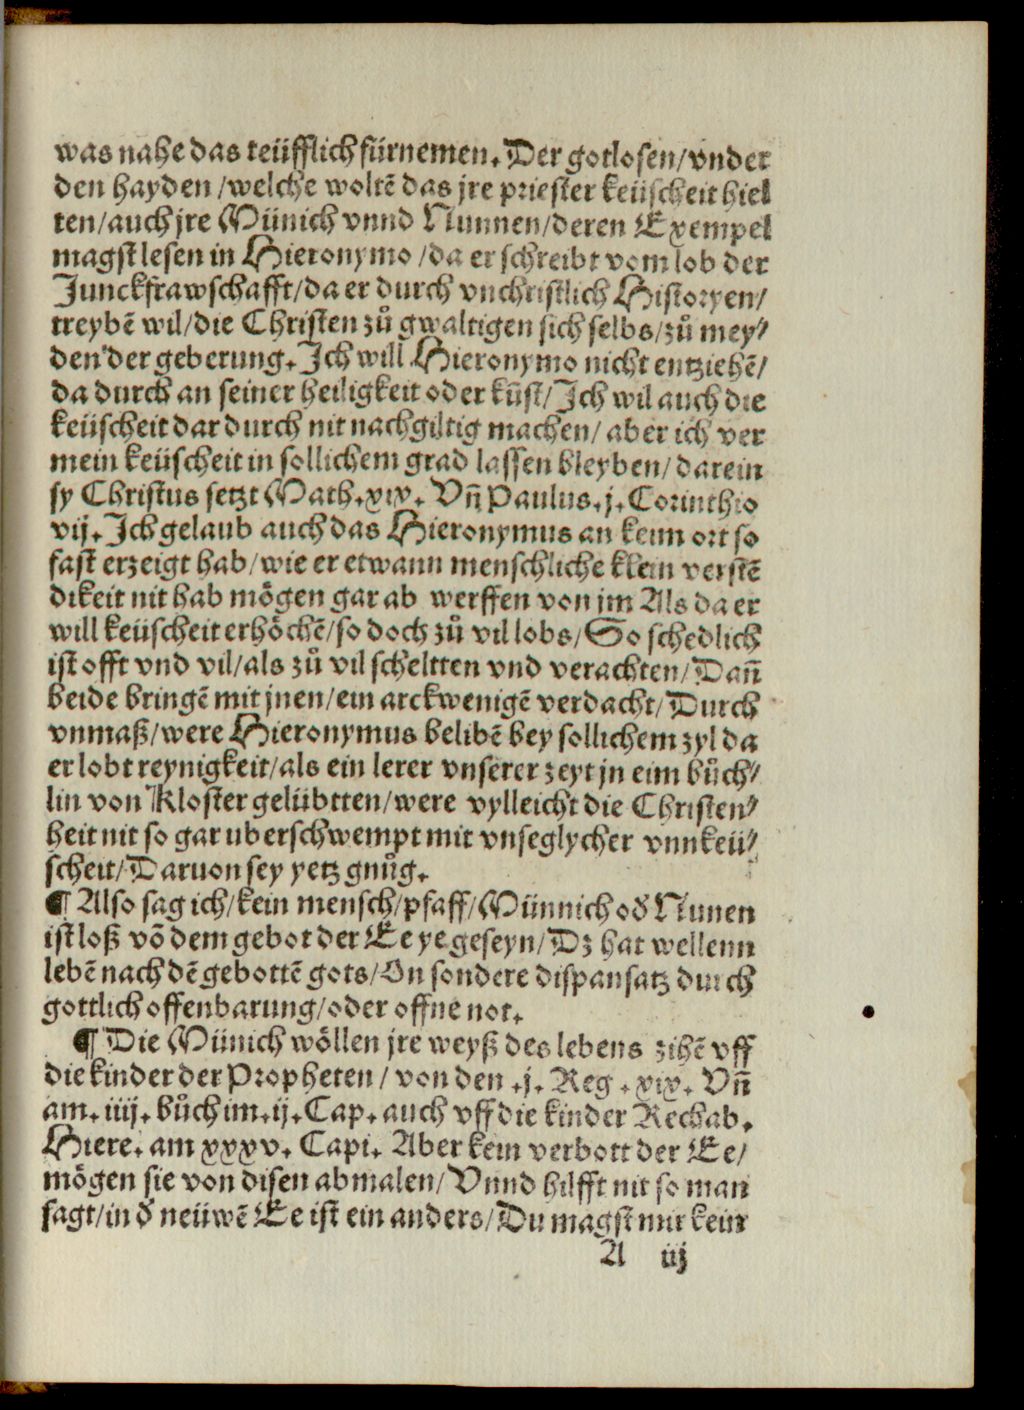 was nahe das teüfflich fürnemen. Der gotlosen/vnder
den hayden/welche woltē das jre priester keüscheit hiel
ten/auch jre Münich vnnd Nunnen/deren Exempel
magst lesen in Hieronymo/da er schreibt vom lob der
Junckfrawschafft/da er durch vnchristlich Historyen/
treybē wil/die Christen zů gwaltigen sich selbs/zů mey⸗
den der geberung. Ich will Hieronymo nicht entziehē/
da durch an seiner heiligkeit oder kūst/Ich wil auch die
keüscheit dar durch nit nachgiltig machen/aber ich ver
mein keüscheit in sollichem grad lassen bleyben/darein
sy Christus setzt Math.xix. Vñ Paulus.j.Corinthio
vij. Ich gelaub auch das Hieronymus an keim ort so
fast erzeigt hab/wie er etwann menschliche klein verstē
dikeit nit hab mögen gar ab werffen von jm Als da er
will keüscheit erhöchē/so doch zů vil lobs/So schedlich
ist offt vnd vil/als zů vil scheltten vnd verachten/Dañ
beide bringē mit jnen/ein arckwenigē verdacht/Durch
vnmaß/were Hieronymus belibē bey sollichem zyl da
er lobt reynigkeit/als ein lerer vnserer zeyt jn eim bůch⸗
lin von Kloster gelübtten/were vylleicht die Christen⸗
heit nit so gar uberschwempt mit vnseglycher vnnkeü⸗
scheit/Daruon sey yetz gnůg.
¶ Also sag ich/kein mensch/pfaff/Münnich oď Nunen
ist loß vō dem gebot der Ee ye geseyn/Dz hat wellenn
lebē nach dē gebottē gots/On sondere dispansatz durch
gottlich offenbarung/oder offne not.
¶ Die Münich wöllen jre weyß des lebens zihē vff
die kinder der Propheten/von den .j. Reg. xix. Vñ
am. iiij. bůch im. ij. Cap. auch vff die kinder Rechab.
Hiere. am xxxv. Capi. Aber kein verbott der Ee/
mögen sie von disen abmalen/Vnnd hilfft nit so man
sagt/in ď neüwē Ee ist ein anders/Du magst mir kein
A iij